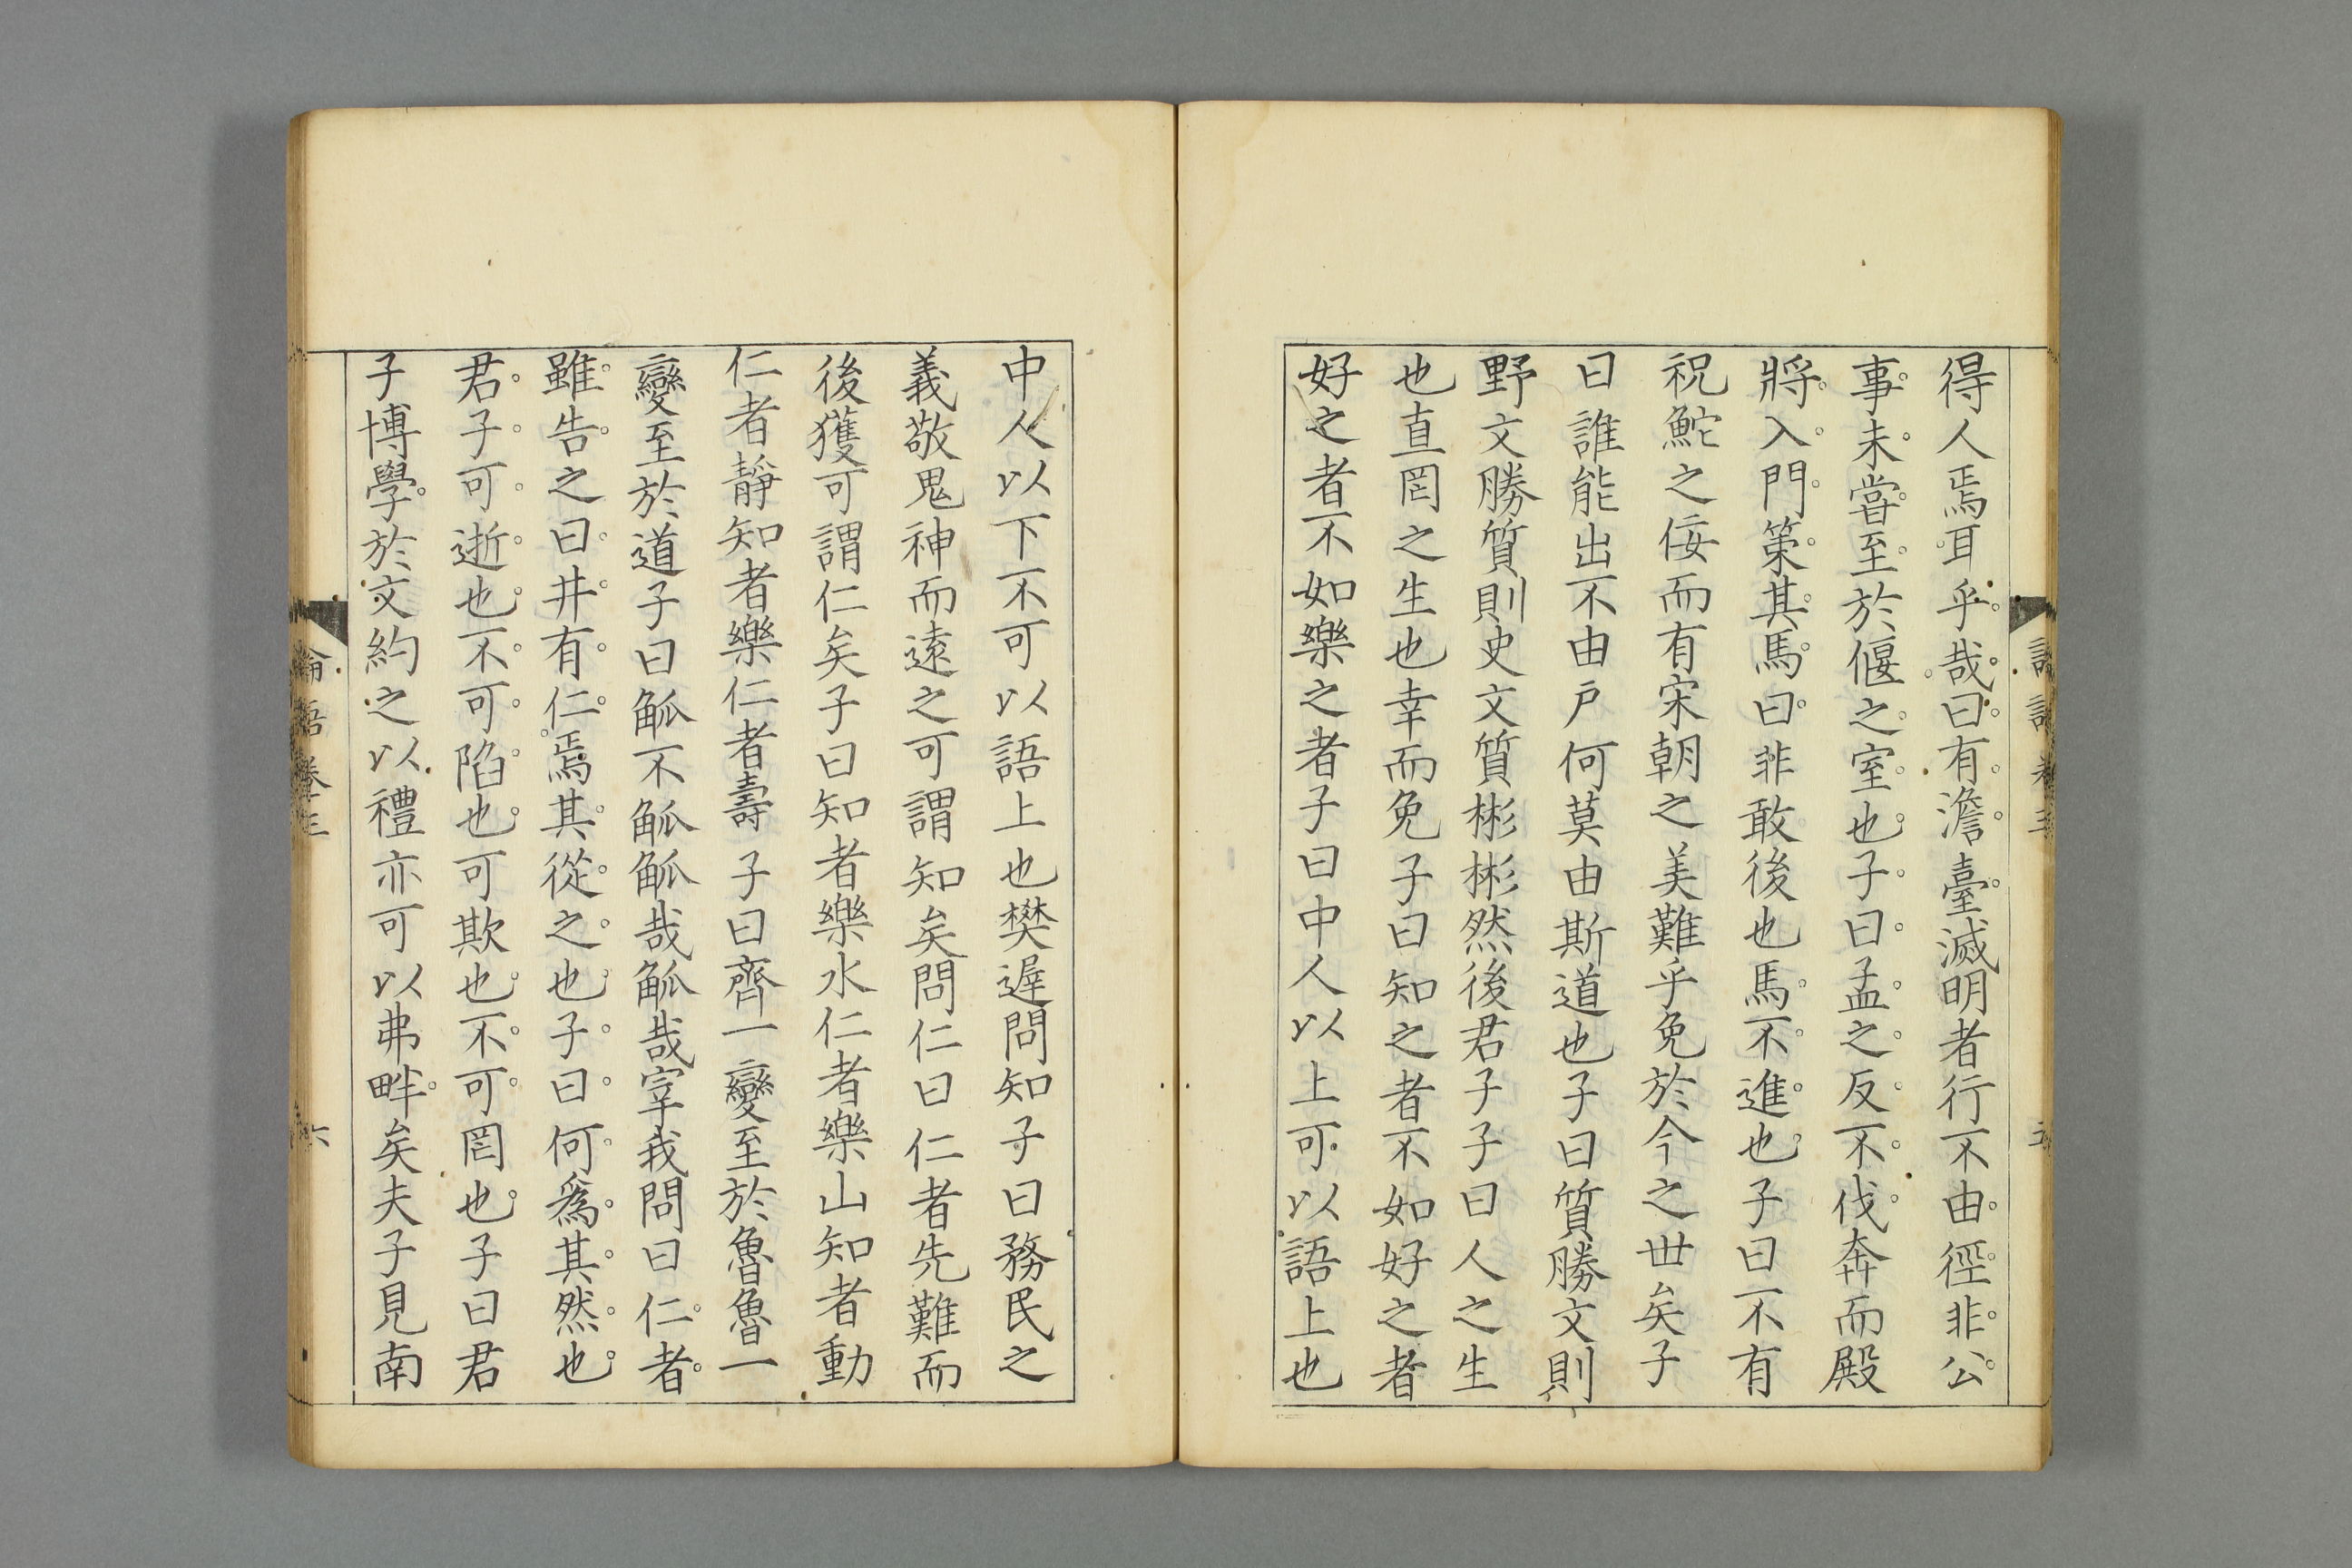 得人焉耳乎哉曰有澹臺滅明者行不由徑非公
事未嘗至於偃之室也子曰孟之反不伐奔而殿
將入門策其馬曰非敢後也馬不進也子曰不有
祝鮀之佞而有宋朝之美難乎免於今之世矣子
曰誰能出不由戶何莫由斯道也子曰質勝文則
野文勝質則史文質彬彬然後君子子曰人之生
也直罔之生也幸而免子曰知之者不如好之者
好之者不如樂之者子曰中人以上可以語上也
中人以下不可以語上也樊遲問知子曰務民之
義敬鬼神而遠之可謂知矣問仁曰仁者先難而
後獲可謂仁矣子曰知者樂水仁者樂山知者動
仁者靜知者樂仁者壽子曰齊一變至於魯魯一
變至於道子曰觚不觚觚哉觚哉宰我問曰仁者
雖告之曰井有仁焉其從之也子曰何爲其然也
君子可逝也不可陷也可欺也不可罔也子曰君
子博學於文約之以禮亦可以弗畔矣夫子見南
論語卷三
六